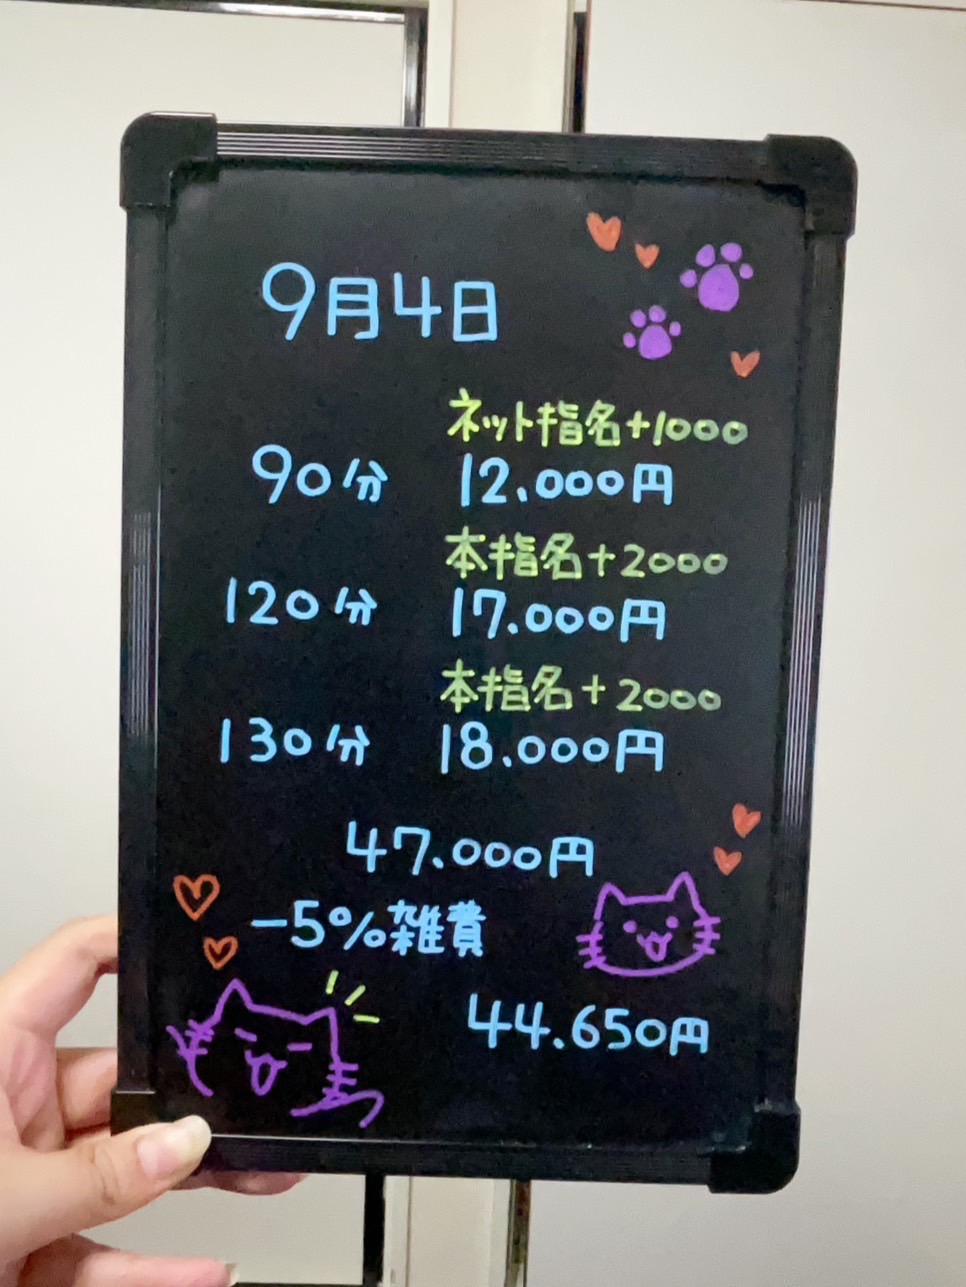 9月4日
ネット指名+1000
90分 12.000円
本指名+2000
120分 17.000円
本指名+2000
130分 18.000円
47.000円
-5%雑費
44.650円